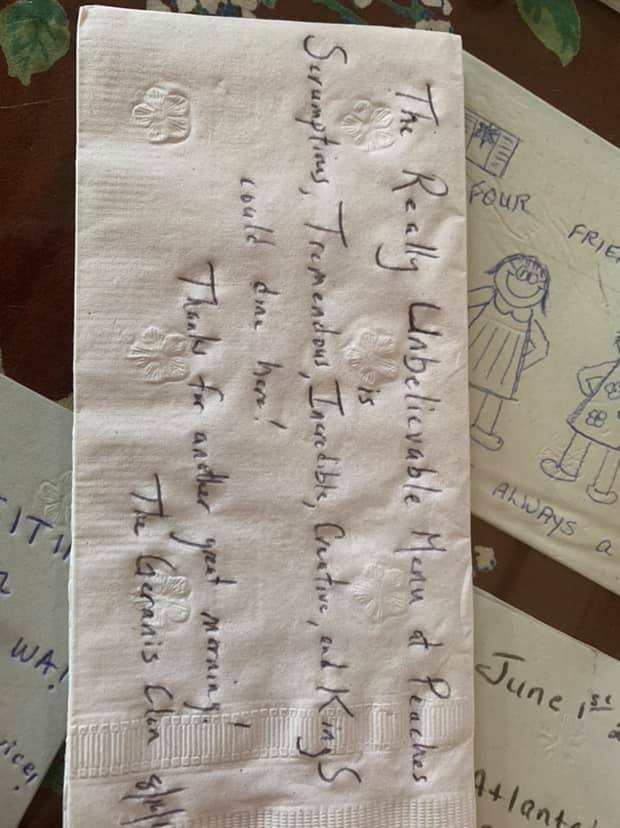 The Really Unbelievable Menu at Peaches
is
Scrumptious, Tremendous, Incredible, Creative, and Kings
could dine here!
Thanks for another great morning!
The Geranis Clan 8/16/1
FOUR FRIE
ALWAYS a
June 1st 2
Atlanta
WA!